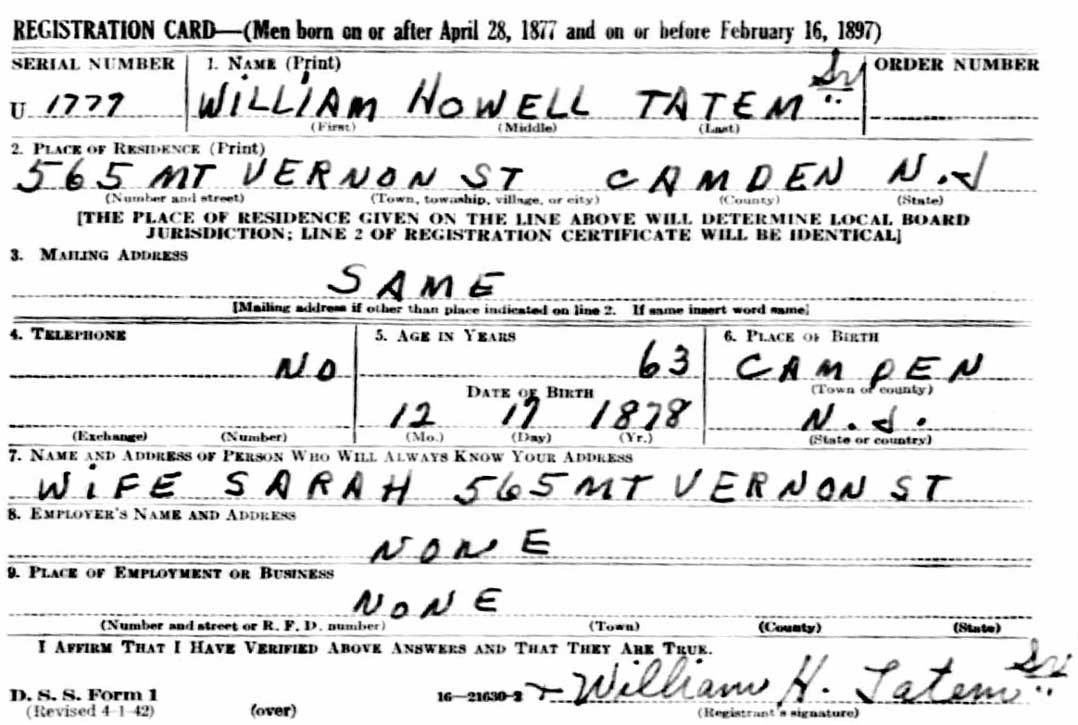 REGISTRATION CARD—(Men born on or after April 28, 1877 and on or before February 16, 1897)
SERIAL NUMBER 1. NAME (Print) ORDER NUMBER
U 1779 WILLIAM HOWELL TATEM Sr
(First) (Middle) (Last)
2. PLACE OF RESIDENCE (Print)
565 MT VERNON ST CAMDEN N.J
(Number and street) (Town, township, village, or city) (County) (State)
[THE PLACE OF RESIDENCE GIVEN ON THE LINE ABOVE WILL DETERMINE LOCAL BOARD
JURISDICTION; LINE 2 OF REGISTRATION CERTIFICATE WILL BE IDENTICAL]
3. MAILING ADDRESS
SAME
[Mailing address if other than place indicated on line 2. If same insert word same]
4. TELEPHONE 5. AGE IN YEARS 6. PLACE OF BIRTH
NO 63 CAMDEN
DATE OF BIRTH (Town or county)
12 17 1878 N.J.
(Exchange) (Number) (Mo.) (Day) (Yr.) (State or country)
7. NAME AND ADDRESS OF PERSON WHO WILL ALWAYS KNOW YOUR ADDRESS
WIFE SARAH 565 MT VERNON ST
8. EMPLOYER'S NAME AND ADDRESS
NONE
9. PLACE OF EMPLOYMENT OR BUSINESS
NONE
(Number and street or R. F. D. number) (Town) (County) (State)
I AFFIRM THAT I HAVE VERIFIED ABOVE ANSWERS AND THAT THEY ARE TRUE.
D. S. S. Form 1 16—21630-2 William H. Tatem Sr
(Revised 4-1-42) (over) (Registrant's signature)